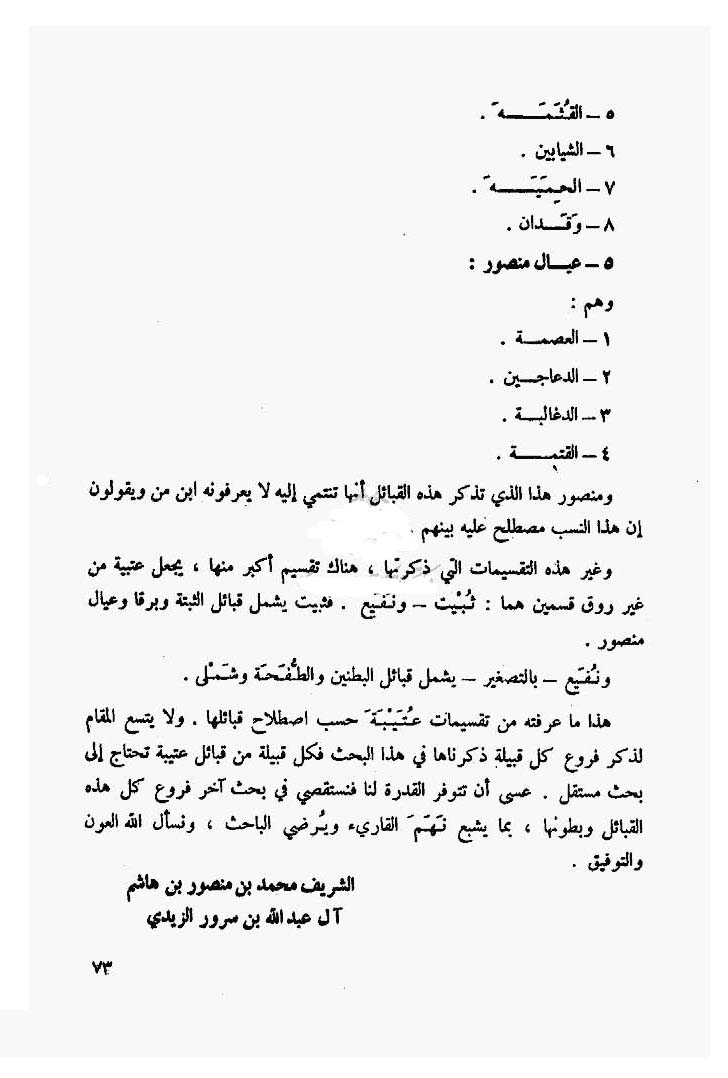 ٥ – القُثَمَـــــهَ .
٦ – الشيابين .
٧ – الحِمَيَـــــهَ .
٨ – وَقَـــدان .
٥ – عيـــال منصور :
وهم :
١ – العصمـــة .
٢ – الدعاجـــين .
٣ – الدغالبـــة .
٤ – القثمـــــة .
ومنصور هذا الذي تذكر هذه القبائل أنها تنتمي إليه لا يعرفونه ابن من ويقولون
إن هذا النسب مصطلح عليه بينهم .
وغير هذه التقسيمات التي ذكرتها ، هناك تقسيم أكبر منها ، يجعل عتيبة من
غير روق قسمين هما : ثُبْيت – ونُفَيع . فثبيت يشمل قبائل الثبتة وبرقا وعيال
منصور .
ونُفَيع – بالتصغير – يشمل قبائل البطنين والطُّفَحَة وشَمْلى .
هذا ما عرفته من تقسيمات عُتَيْبَةَ حسب اصطلاح قبائلها . ولا يتسع المقام
لذكر فروع كل قبيلة ذكرناها في هذا البحث فكل قبيلة من قبائل عتيبة تحتاج إلى
بحث مستقل . عسى أن تتوفر القدرة لنا فنستقصي في بحث آخر فروع كل هذه
القبائل وبطونها ، بما يشبع نَهَمَ القاريء ويُرضي الباحث ، ونسأل الله العون
والتوفيق .
الشريف محمد بن منصور بن هاشم
آل عبدالله بن سرور الزيدي
٧٣